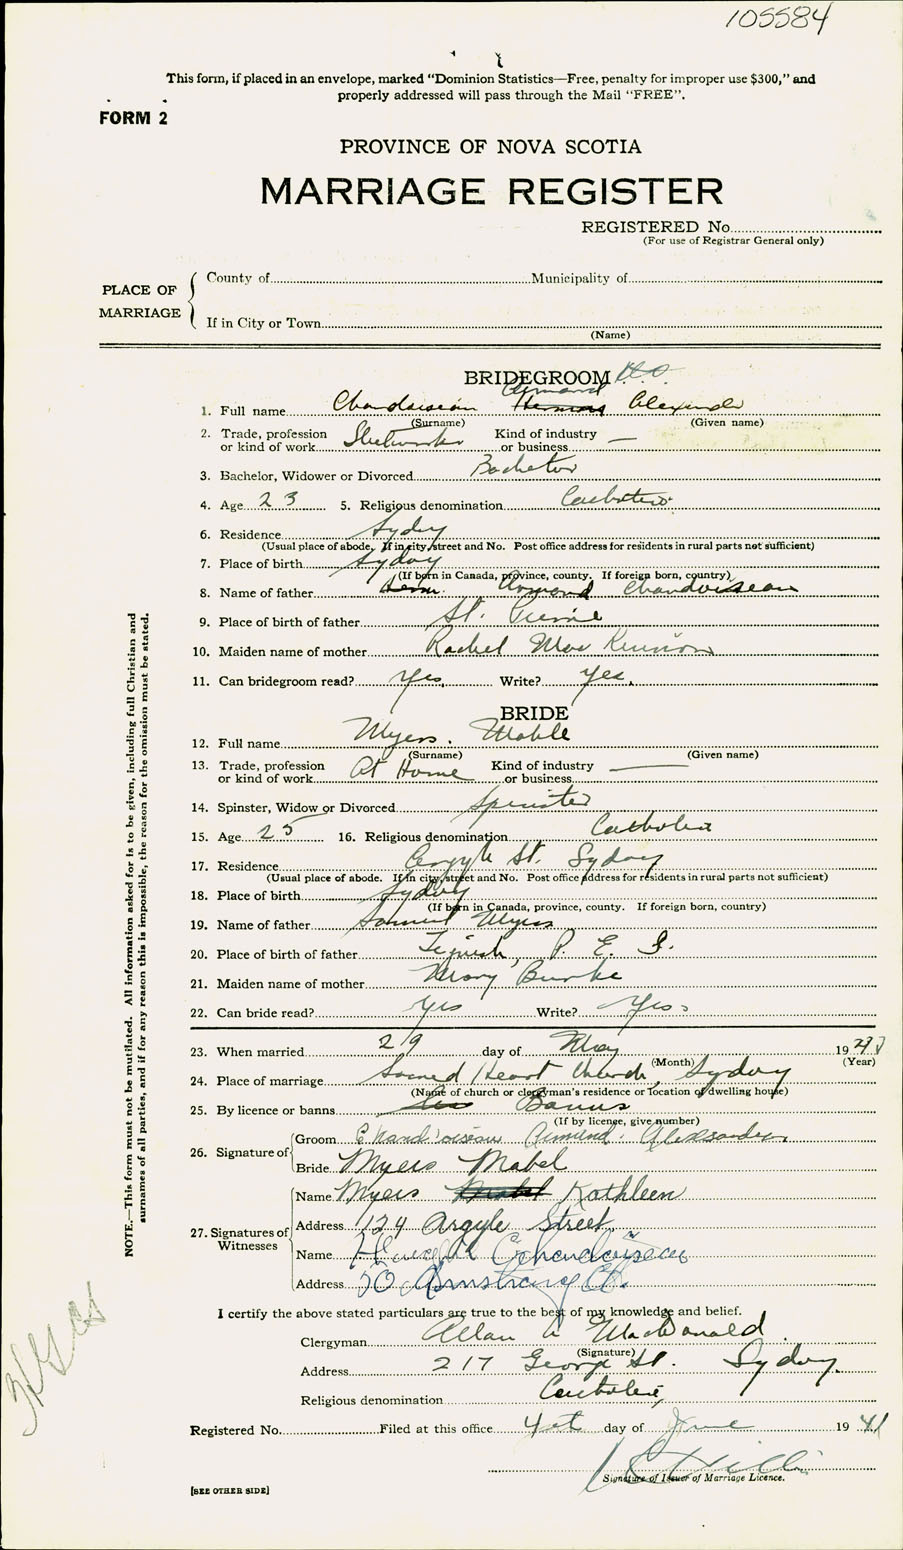 105584
This form, if placed in an envelope, marked "Dominion Statistics—Free, penalty for improper use $300," and
properly addressed will pass through the Mail "FREE".
FORM 2
PROVINCE OF NOVA SCOTIA
MARRIAGE REGISTER
REGISTERED No.
(For use of Registrar General only)
PLACE OF MARRIAGE
County of Municipality of
If in City or Town
(Name)
BRIDEGROOM
Armand
1. Full name Chandoiseau Herman Alexander
(Surname) (Given name)
2. Trade, profession or kind of work Steelworker Kind of industry or business —
3. Bachelor, Widower or Divorced Bachelor
4. Age 23 5. Religious denomination Catholic
6. Residence Sydney
(Usual place of abode. If in city, street and No. Post office address for residents in rural parts not sufficient)
7. Place of birth Sydney
(If born in Canada, province, county. If foreign born, country)
8. Name of father Armond Chandoiseau
9. Place of birth of father St. Pierre
10. Maiden name of mother Rachel MacKinnon
11. Can bridegroom read? Yes. Write? Yes.
BRIDE
12. Full name Myers. Mable
(Surname) (Given name)
13. Trade, profession or kind of work At Home Kind of industry or business —
14. Spinster, Widow or Divorced Spinster
15. Age 25 16. Religious denomination Catholic
17. Residence Argyle St. Sydney
(Usual place of abode. If in city, street and No. Post office address for residents in rural parts not sufficient)
18. Place of birth Sydney
(If born in Canada, province, county. If foreign born, country)
19. Name of father Samuel Myers
20. Place of birth of father Tignish, P. E. I.
21. Maiden name of mother Mary Burke
22. Can bride read? Yes Write? Yes.
23. When married 29 day of May 19
(Month) (Year)
24. Place of marriage Sacred Heart Church, Sydney
(Name of church or clergyman's residence or location of dwelling house)
25. By licence or banns Banns
(If by licence, give number)
26. Signature of
Groom Chandoiseau Armand Alexander
Bride Myers Mabel
27. Signatures of Witnesses
Name Myers Mabel Kathleen
Address 124 Argyle Street
Name Chandoiseau
Address 50 Armstrong Ct.
I certify the above stated particulars are true to the best of my knowledge and belief.
Clergyman Allan A MacDonald
(Signature)
Address 217 George St. Sydney.
Religious denomination Catholic,
Registered No. Filed at this office 4th day of June 19 41
Signature of Issuer of Marriage Licence.
[SEE OTHER SIDE]
NOTE.—This form must not be mutilated. All information asked for is to be given, including full Christian and
surnames of all parties, and if for any reason this is impossible, the reason for the omission must be stated.